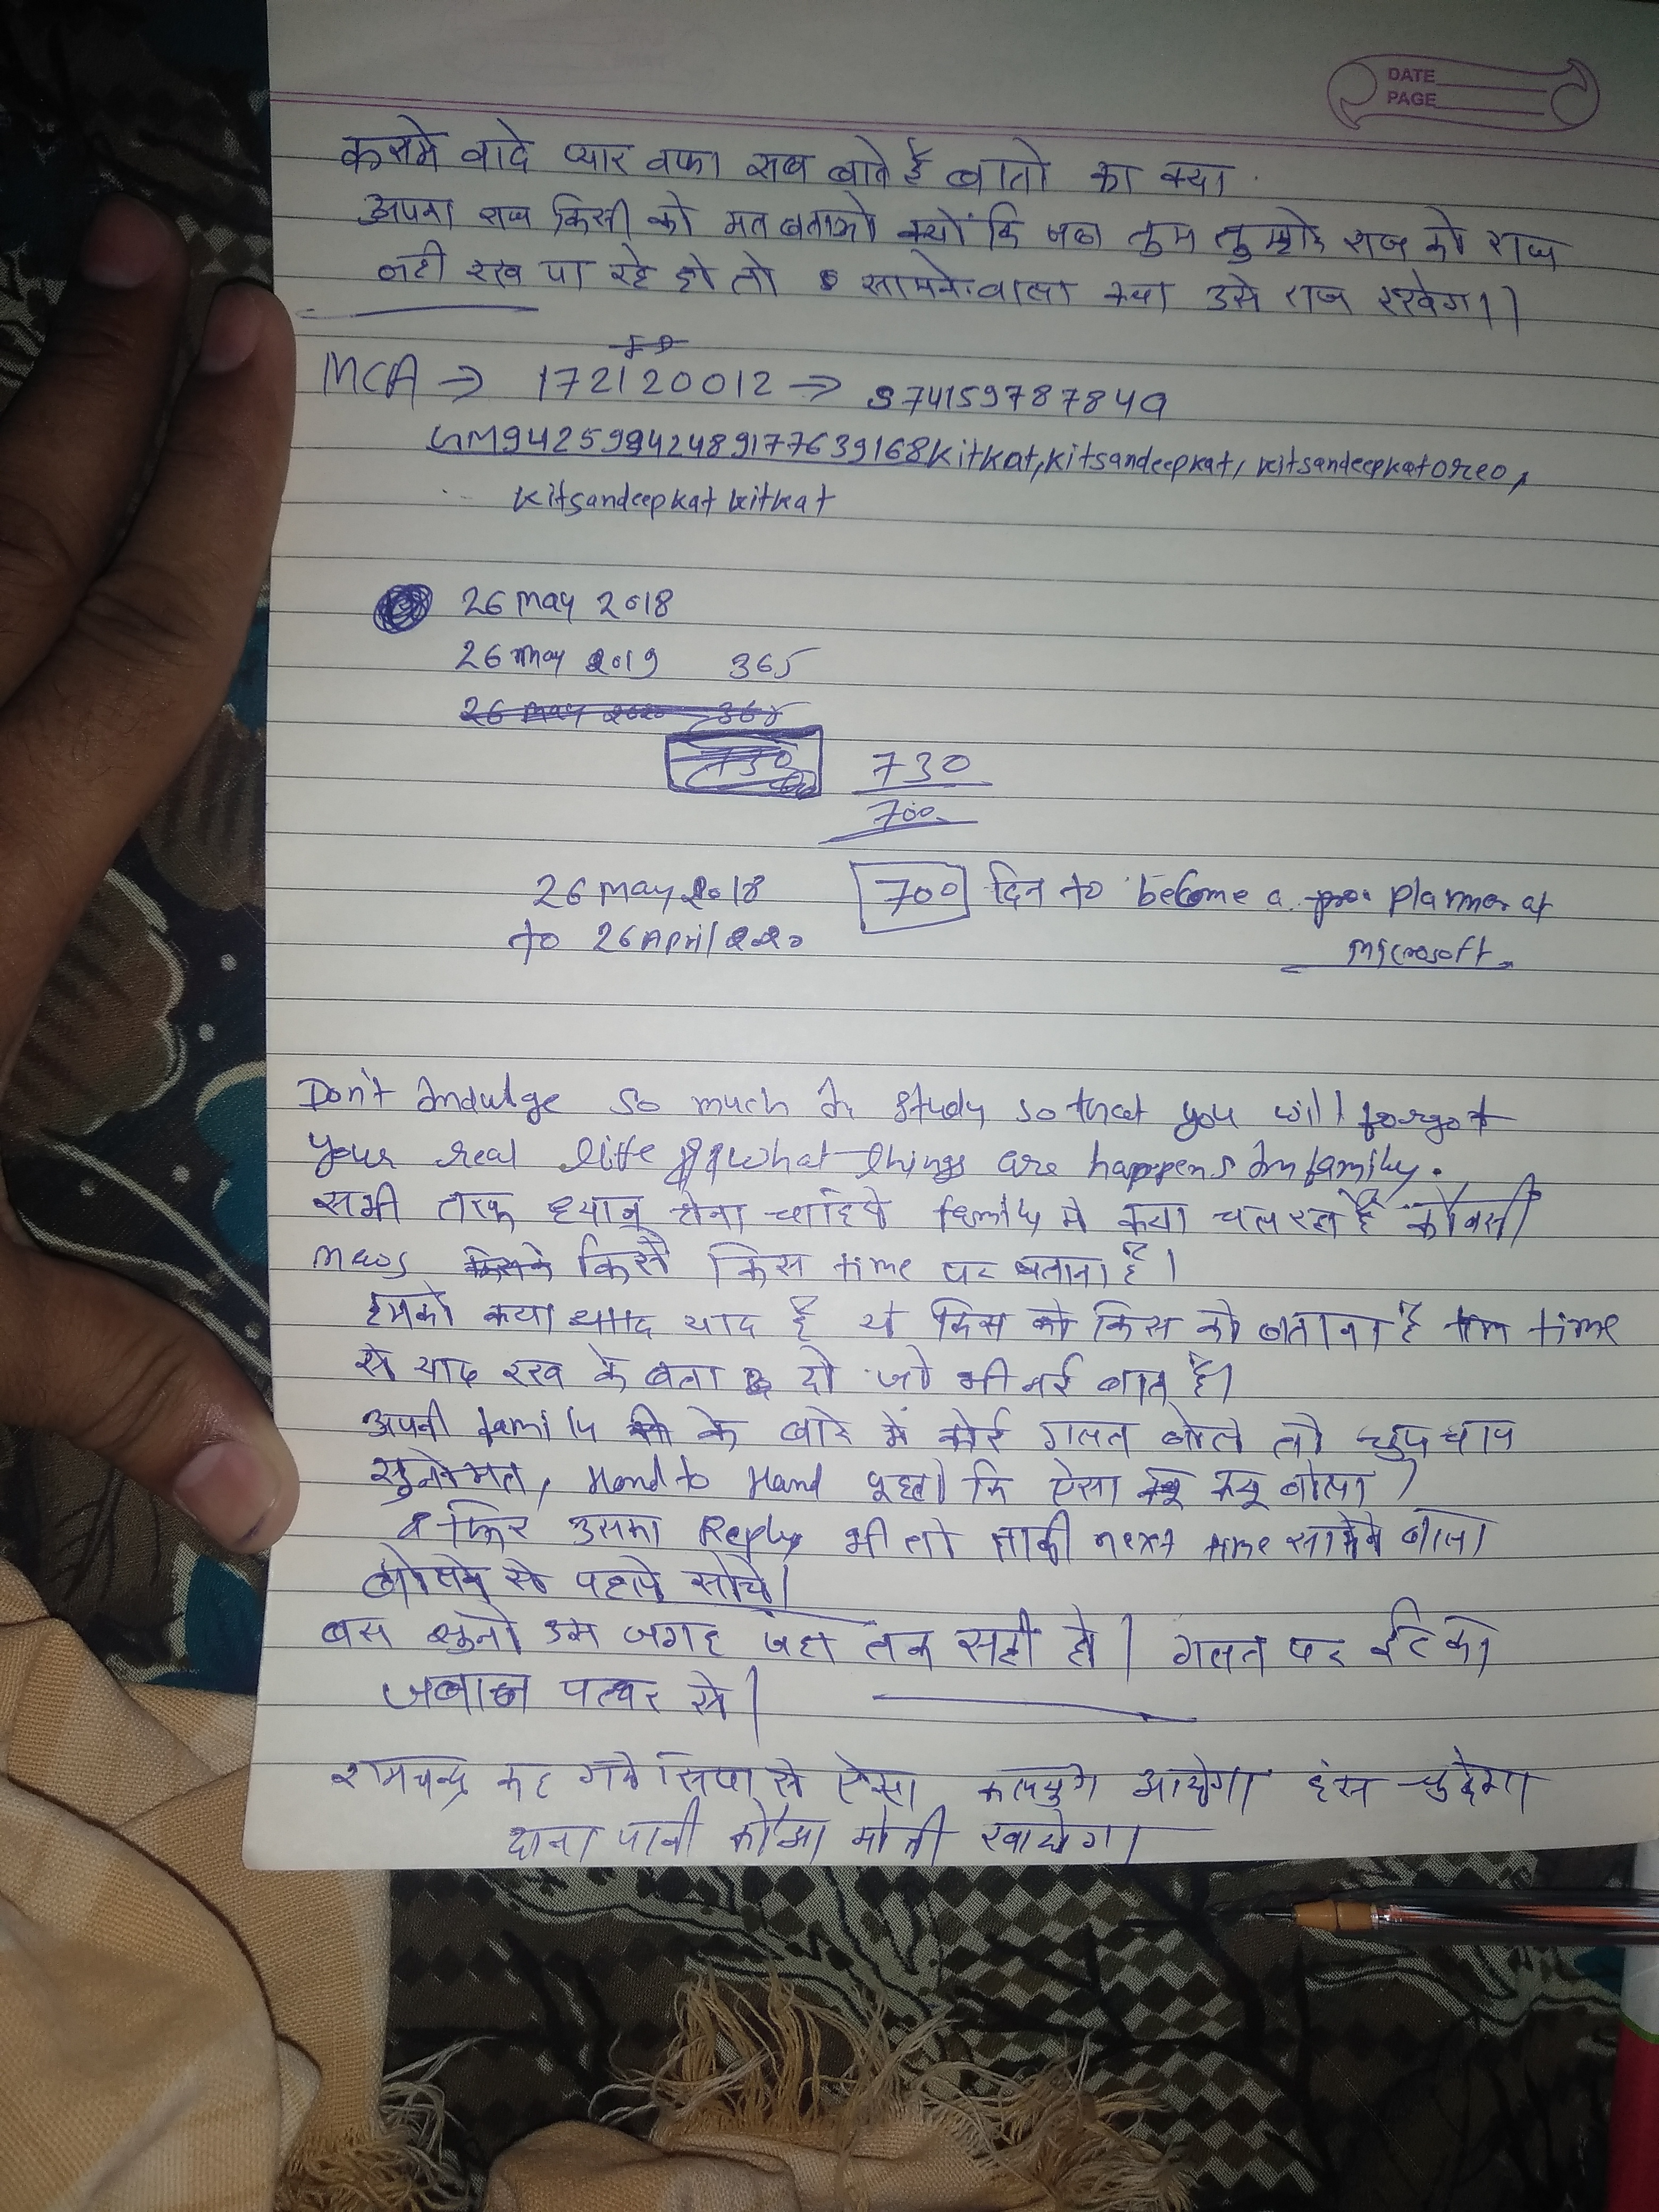 DATE
PAGE
कसमे वादे प्यार वफा सब बाते हैं बातो का क्या
अपना राज किसी को मत बताओ क्यों कि जब तुम तुम्हारे राज को राज
नही रख पा रहे हो तो सामनेवाला क्या उसे राज रखेगा।
MCA → 172120012 → 374159787849
GM94259942489177639168kitkat, kitsandeepkat, kitsandeepkatoreo,
kitsandeepkat kitkat
26 may 2018
26 may 2019 365
26 may 2020 365
730 730
700
26 may 2018 700 दिन to become a planner at
to 26 April 2020 microsoft.
Don't indulge so much in study so that you will forgot
your real life what things are happens in family.
सभी तरफ ध्यान होना चाहिये family मे क्या चल रहा है कौनसी
news किसे किस time पर बताना है।
हमको क्या याद है ये किस को बताना है time
से याद रख के बता दो जो भी नई बात है।
अपनी family के बारे मे कोई गलत बोले तो चुपचाप
सुनोमत, Hand to Hand पूछो कि ऐसा क्यू बोला
व फिर उसका Reply भी लो ताकी next time सामने वाला
बोलने से पहले सोचे।
बस सुनो उस जगह जहा तक सही हो। गलत पर ईट का
जबाब पत्थर से।
रामचन्द्र कह गये सिया से ऐसा कलयुग आयेगा हंस चुगेगा
दाना पानी कौआ मोती खायेगा